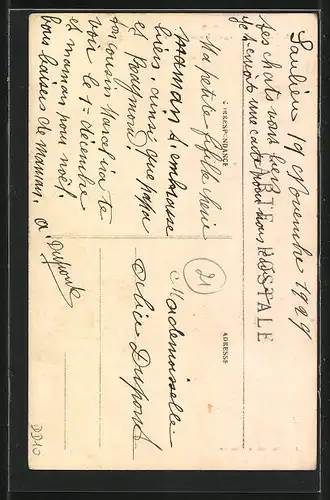 Saulieu 19 Novembre 1929
tes chats vont bien
je t'envoie une carte pour nous
CARTE POSTALE
CORRESPONDANCE
Ma petite fifille chérie
maman t'embrasse
bien, ainsi que papa
et Raymond.
ton cousin Marcelin te
voir le 1er décembre
et maman pour noël.
bons baisers de maman.
A. Dupont
ADRESSE
21
Mademoiselle
Alice Dupont
DD10